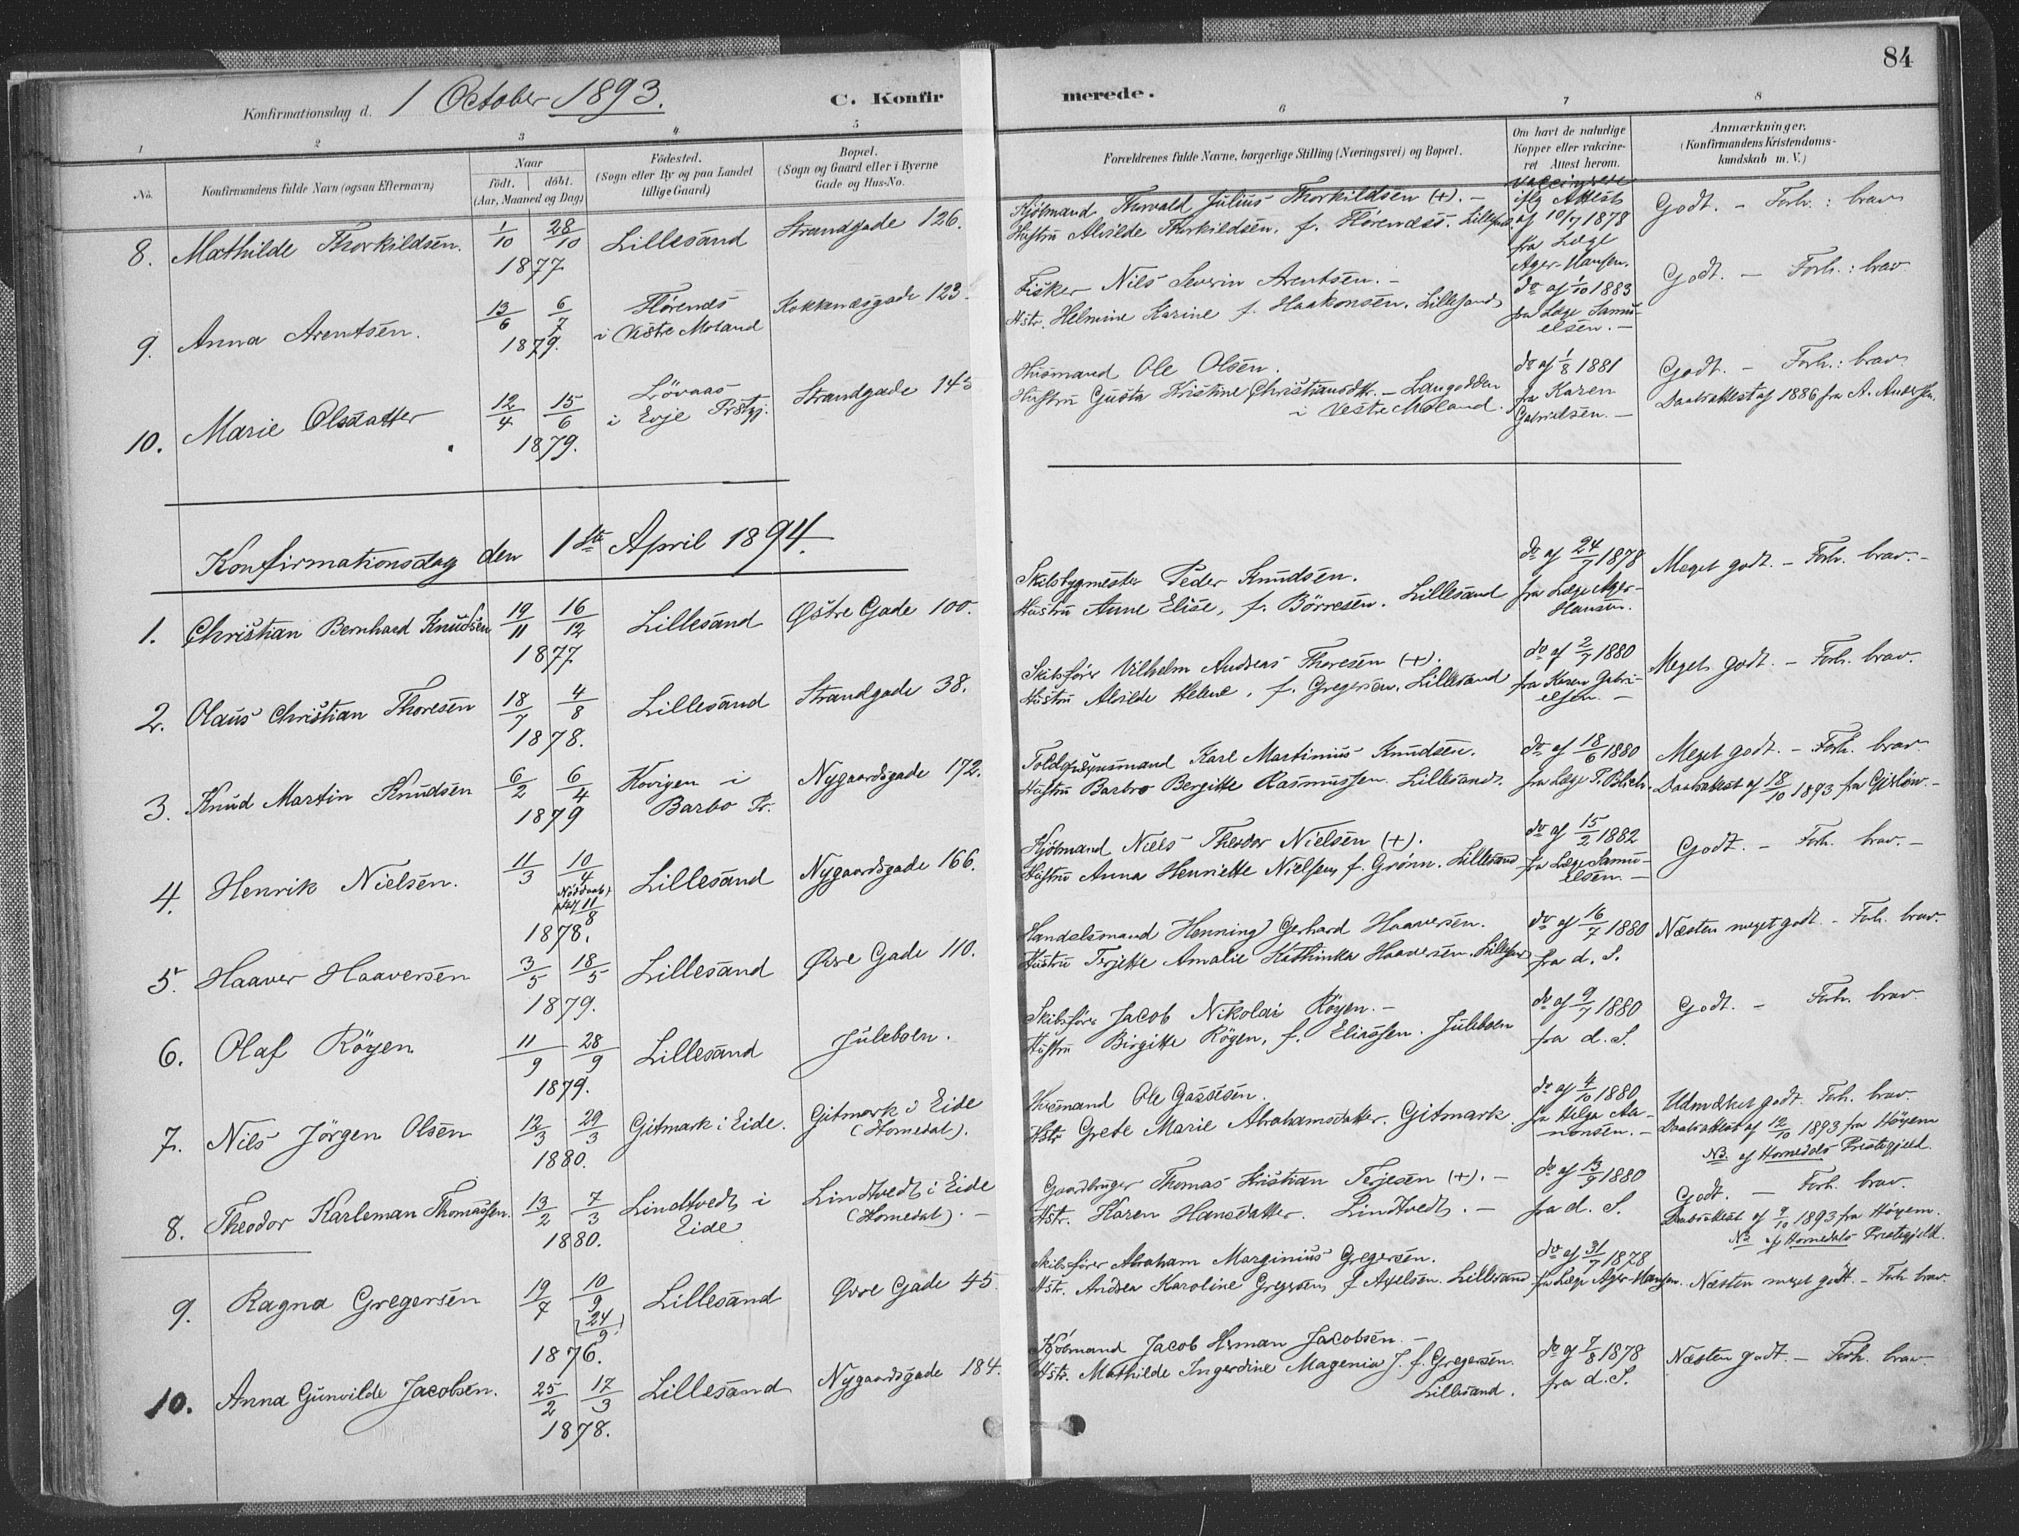 84
Konfirmationsdag d. 1 October 1893.
C. Konfirmerede.
1 2 3 4 5 6 7 8
No.
Konfirmandens fulde Navn (ogsaa Efternavn)
Naar
født. døbt.
(Aar, Maaned og Dag)
Fødested.
(Sogn eller By og paa Landet
tillige Gaard)
Bopæl.
(Sogn og Gaard eller i Byerne
Gade og Hus-No.
Forældrenes fulde Navne, borgerlige Stilling (Næringsvei) og Bopæl.
Om havt de naturlige
Kopper eller vakcine-
ret Attest herom.
Anmærkninger.
(Konfirmandens Kristendoms-
kundskab m. V.)
8. Mathilde Thorkildsen. 1/10 28/10 1877 Lillesand Strandgade 126.
Kjöbmand Thorvald Julius Thorkildsen (+). –
Hustru Alvilde Thorkildsen, f. Hörendes. Lillesand
vaccineret
iflg Attest
af 10/7 1878
fra Læge
Ager-Hansen.
Godt. – Forh.: brav
9. Anna Arentsen. 13/6 6/7 1879. i Vestre Moland Kokkenesgade 123.
Fisker Nils Severin Arentsen. –
Hstr. Helmine Karine f. Haakonsen. Lillesand
do af 1/10 1883
fra Læge Samu-
elsen. –
Godt. – Forh.: brav.
10. Marie Olsdatter 12/4 15/6 1879. Lövaas
i Evje Prstgj. Strandgade 145
Husmand Ole Olsen.
Hustru Gusta Kristine Christiansdtr. – Langodden
i Vestre Moland.
do af 1/8 1881
fra Karen
Gabrielsen. –
Godt. – Forh.: brav
Daabsattest af 1886 fra A. Andersen.
Konfirmationsdag den 1ste April 1894.
1. Christian Bernhard Knudsen 19/11 16/12 1877 Lillesand Østre Gade 100.
Skibsbygmester Peder Knudsen.
Hustru Anne Elise, f. Börresen. Lillesand
do af 24/7 1878
fra Læge Ager-
Hansen.
Meget godt. – Forh. brav. –
2. Olaus Christian Thoresen 18/7 4/8 1878. Lillesand Strandgade 38.
Skibsförer Vilhelm Andreas Thoresen (+).
Hustru Alvilde Helene, f. Gregersen. Lillesand
do af 2/7 1880
fra Karen Gabri-
elsen. –
Meget godt. – Forh. brav.
3. Knud Martin Knudsen 6/2 6/4 1879 Kovigen i
Barbo Pr. Nygaardsgade 172.
Toldopsynsmand Karl Martinius Knudsen.
Hustru Barbro Bergitte Rasmussen. Lillesand.
do af 18/6 1880
fra Læge T. Blich.
Meget godt. – Forh. brav
Daabsattest af 18/10 1893 fra Gislöw. –
4. Henrik Nielsen. 11/3 10/4 11/8 1878. Lillesand Nygaardsgade 166.
Kjöbmand Niels Theodor Nielsen (+).
Hustru Anna Henriette Nielsen, f. Grönn. Lillesand
do af 15/2 1882
fra Læge Samu-
elsen. –
Godt. – Forh. brav. –
5. Haaver Haaversen 3/5 18/5 1879. Lillesand Øvre Gade 110.
Handelsmand Henning Gerhard Haaversen.
Hustru Terjette Amalie Kathinka Haaversen. Lillesand
do af 16/7 1880
fra d. S.
Næsten meget godt. – Forh. brav.
6. Olaf Röyen 11/9 28/9 1879. Lillesand Juleboen.
Skibsförer Jacob Nikolai Röyen. –
Hustru Birgitte Röyen, f. Eliassen. Juleboen
do af 9/7 1880
fra d. S.
Godt. – Forh. brav.
7. Nils Jörgen Olsen 12/3 29/3 1880. Gitmark i Eide. Gitmark i Eide
(Homedal).
Husmand Ole Gasesen.
Hstr. Grete Marie Abrahamsdatter. Gitmark.
do af 4/10 1880
fra Helge Aa-
nonsen. –
Udmærket godt. Forh. brav.
Daabsattest af 12/10 1893 fra Höyem
NB. af Homedals Prestegjeld.
8. Theodor Karleman Thomassen. 13/2 7/3 1880. Lindtvedt i
Eide Lindtvedt i Eide
(Homedal). –
Gaardbruger Thomas Kristian Terjesen (+). –
Hstr. Karen Hansdatter. Lindtvedt. –
do af 13/9 1880
fra d. S.
Godt. – Forh. brav.
Daabsattest af 9/10 1893 fra Höyem.
NB af Homedals Prestegjeld.
9. Ragna Gregersen 19/7 10/9 (24/9) 1876. Lillesand Øvre Gade 45.
Skibsförer Abraham Marginius Gregersen.
Hstr. Andrea Karoline Gregersen, f. Axelsen. Lillesand
do af 31/7 1878
fra Læge Ager-Hansen.
Næsten meget godt. – Forh. brav
10. Anna Gunvilde Jacobsen. 25/2 17/3 1878. Lillesand Nygaardsgade 184.
Kjöbmand Jacob Herman Jacobsen. –
Hstr. Mathilde Ingerdine Magenia J. f. Gregersen.
Lillesand.
do af 7/8 1878
fra d. S.
Næsten godt. – Forh. brav.